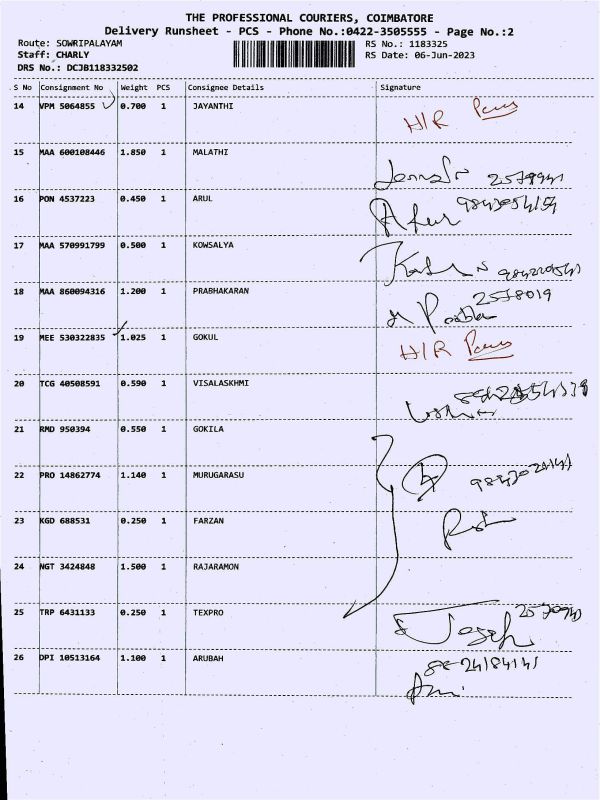 THE PROFESSIONAL COURIERS, COIMBATORE
Delivery Runsheet - PCS - Phone No.:0422-3505555 - Page No.:2
Route: SOWRIPALAYAM RS No.: 1183325
Staff: CHARLY RS Date: 06-Jun-2023
DRS No.: DCJB118332502
S No Consignment No Weight PCS Consignee Details Signature
14 VPM 5064855 0.700 1 JAYANTHI H/R
15 MAA 600108446 1.850 1 MALATHI
16 PON 4537223 0.450 1 ARUL
17 MAA 570991799 0.500 1 KOWSALYA
18 MAA 860094316 1.200 1 PRABHAKARAN 2578019
19 MEE 530322835 1.025 1 GOKUL H/R
20 TCG 40508591 0.590 1 VISALASKHMI
21 RMD 950394 0.550 1 GOKILA
22 PRO 14862774 1.140 1 MURUGARASU
23 KGD 688531 0.250 1 FARZAN
24 NGT 3424848 1.500 1 RAJARAMON
25 TRP 6431133 0.250 1 TEXPRO
26 DPI 10513164 1.100 1 ARUBAH